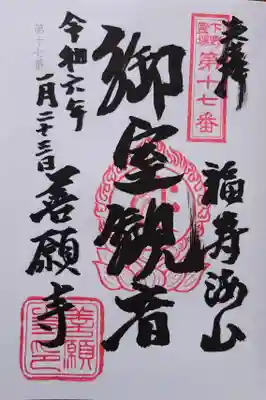 奉拝
下野霊場
第十七番
福寿海山
御室観音
善願寺
令和六年
一月二十三日
第十七番
善願寺印